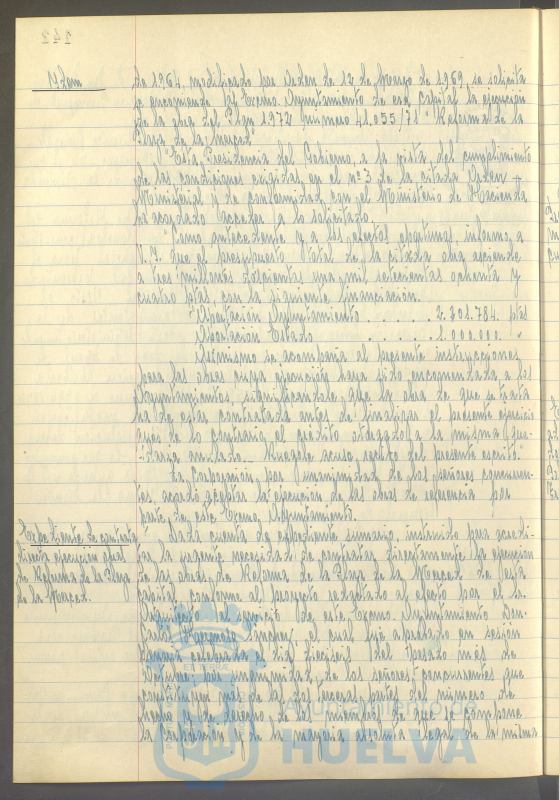 Idem
de 1964, modificado por Orden de 12 de Marzo de 1969, se solicita
se encomiende al Excmo. Ayuntamiento de esa capital la ejecución
de la obra del Plan 1972 número 41.055/71 "Reforma de la
Plaza de la Merced".
"Esta Presidencia del Gobierno, a la vista del cumplimiento
de las condiciones exigidas en el nº 3 de la citada Orden
Ministerial y de conformidad con el Ministerio de Hacienda
ha acordado acceder a lo solicitado.
"Como antecedente y a los efectos oportunos, informo a
V.I. que el presupuesto total de la citada obra asciende
a tres millones doscientas una mil setecientas ochenta y
cuatro ptas, con la siguiente financiación.
Aportación Ayuntamiento . . . . . . 2.201.784. ptas
Aportación Estado . . . . . 1.000.000. "
Asimismo se acompaña al presente instrucciones
para las obras cuya ejecución haya sido encomendada a los
Ayuntamientos, significándole que la obra de que se trata
ha de estar contratada antes de finalizar el presente ejercicio
pues de lo contrario, el crédito otorgado a la misma que-
daría anulado. Ruégole acuse recibo del presente escrito."
La Corporación por unanimidad de los señores concurren-
tes, acordó aceptar la ejecución de las obras de referencia por
parte de este Excmo. Ayuntamiento.
Expediente de contrata
directa ejecución obras
de Reforma de la Plaza
de la Merced.
Dada cuenta de expediente sumario, instruido para acredi-
tar la urgente necesidad de contratar directamente la ejecución
de las obras de Reforma de la Plaza de la Merced de esta
capital, conforme al proyecto redactado al efecto por el Sr.
Arquitecto al servicio de este Excmo. Ayuntamiento Don
Carlos Hermoso Sánchez, el cual fué aprobado en sesión
plenaria celebrada el día dieciseis del pasado mes de
por unanimidad de los señores concurrentes que
constituyen más de las dos terceras partes del número de
hecho y de derecho de los miembros de que se compone
la Corporación y de la mayoría absoluta legal de la misma
Ayuntamiento de
HUELVA